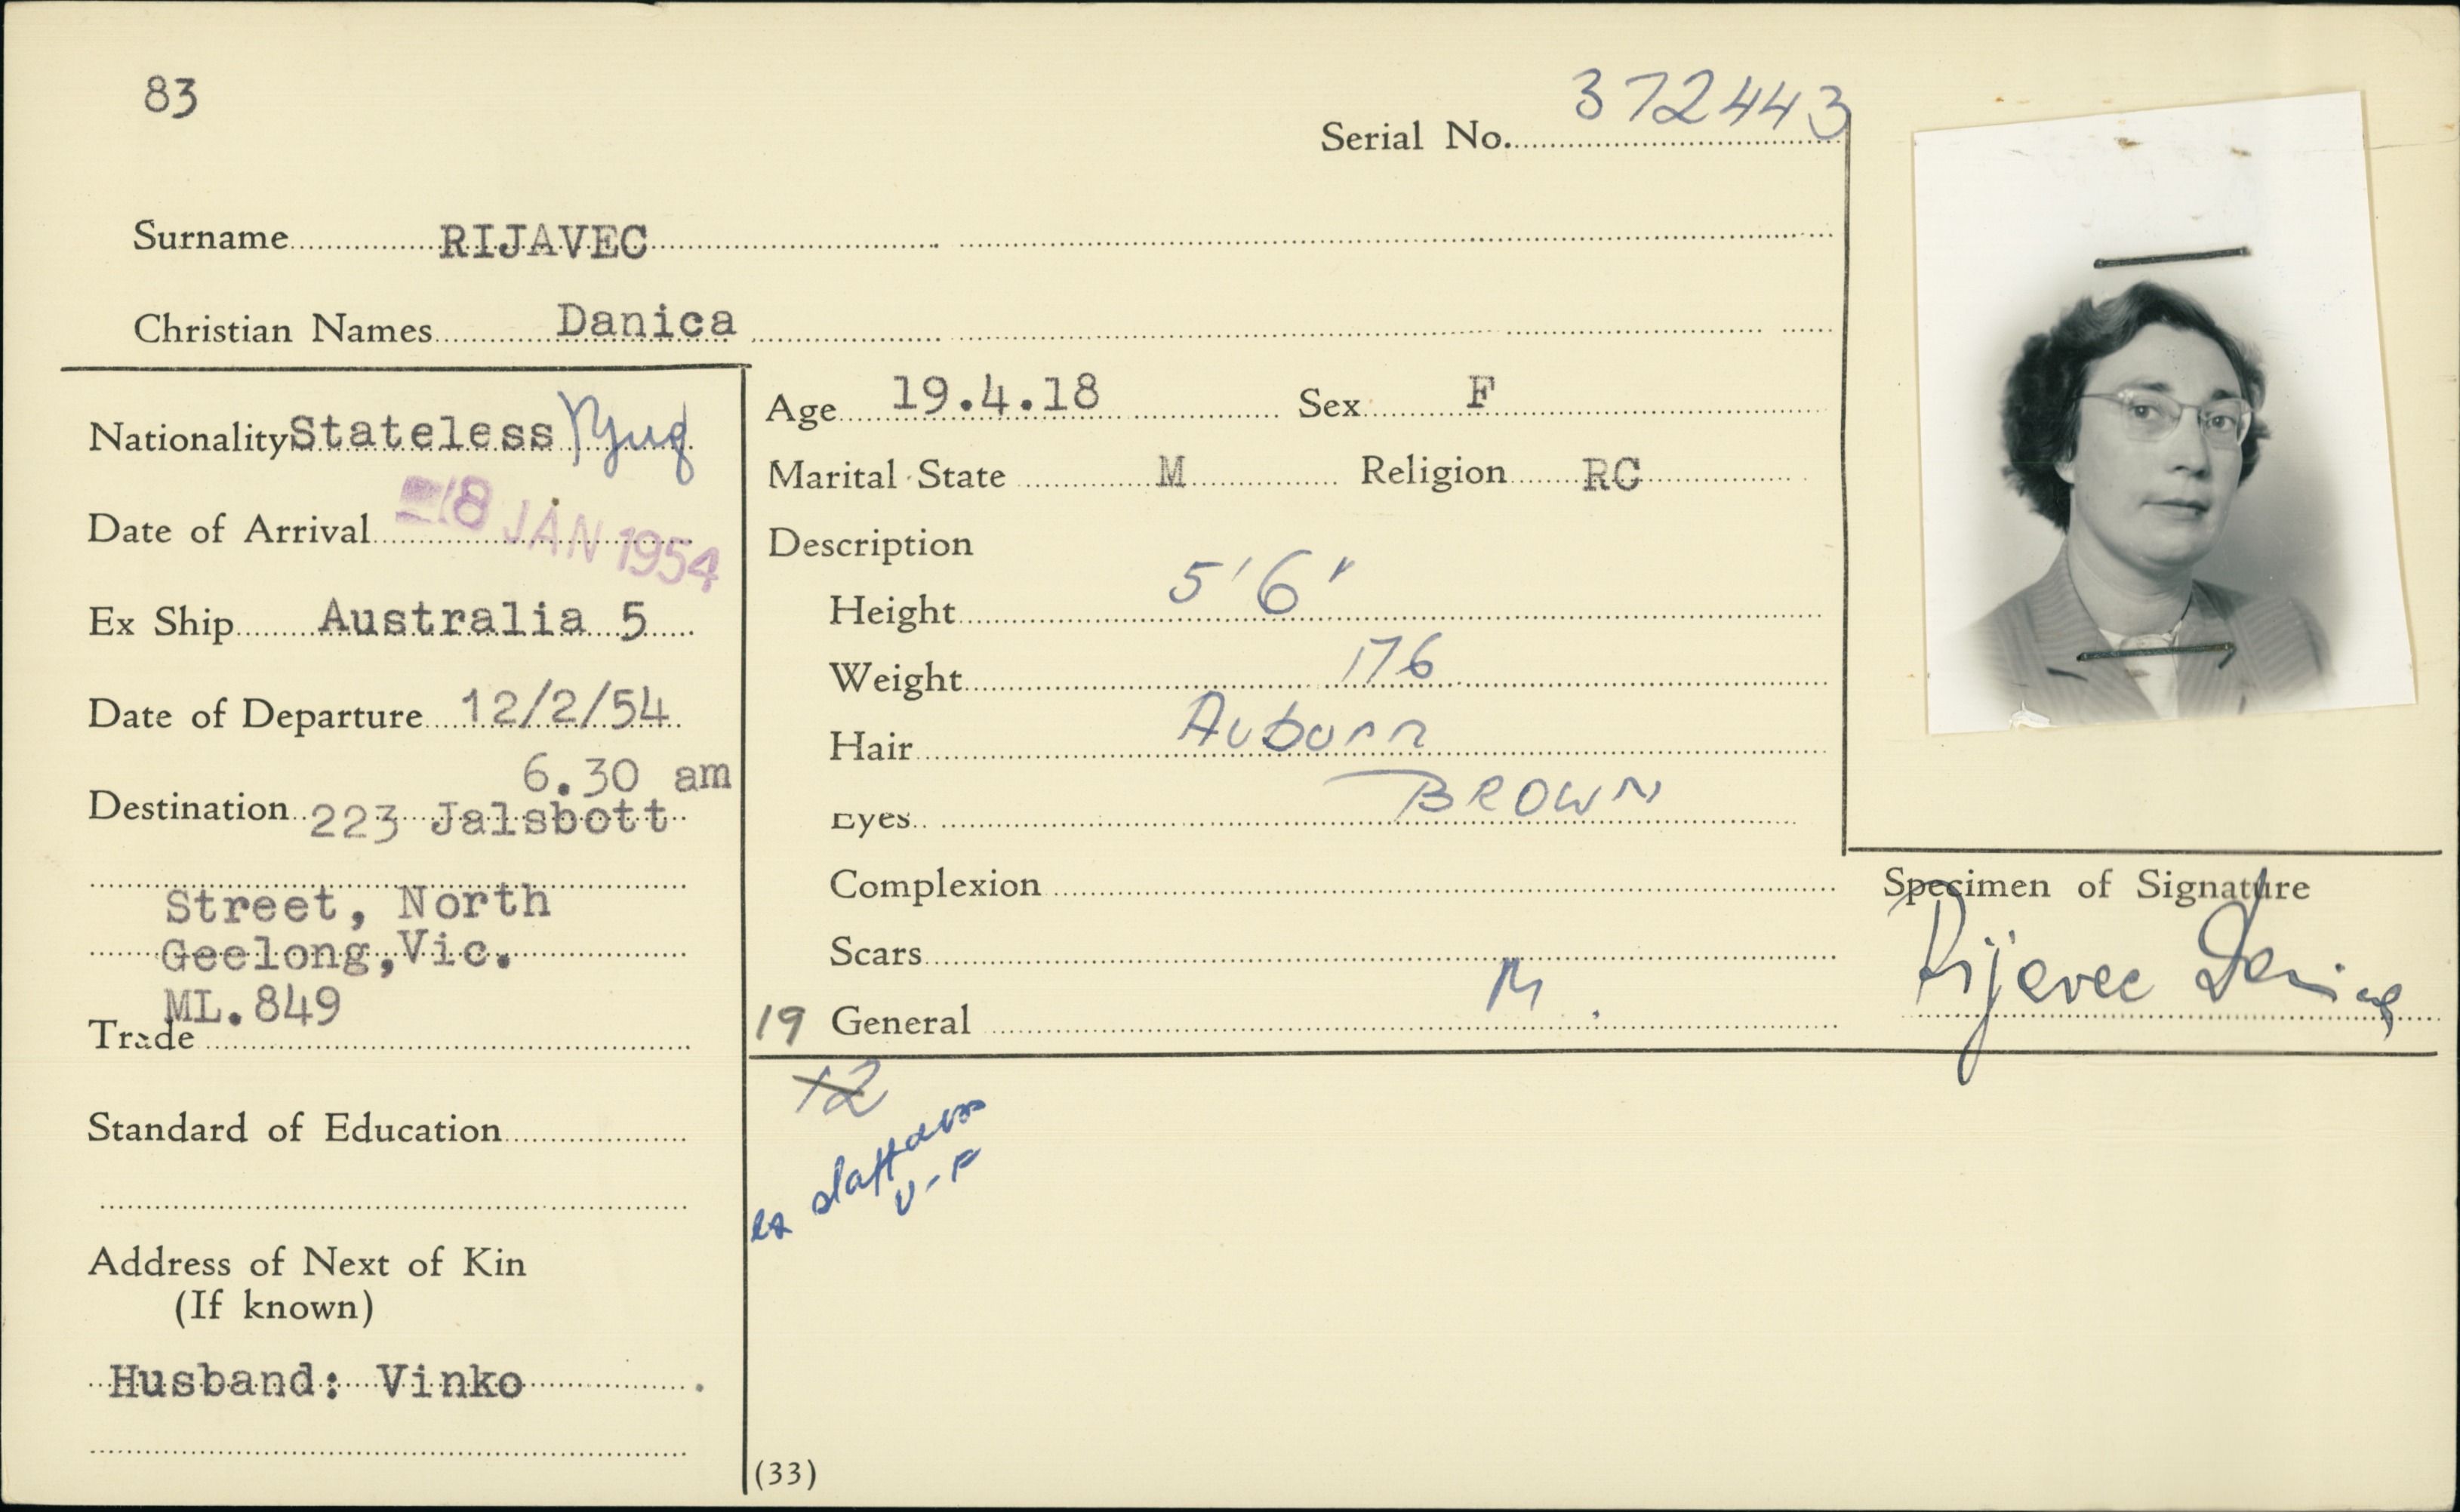 83
Serial No. 372443
Surname RIJAVEC
Christian Names Danica
Nationality Stateless Yug
Date of Arrival 8 JAN 1954
Ex Ship Australia 5
Date of Departure 12/2/54
6.30 am
Destination 223 Jalsbott
Street, North
Geelong, Vic.
ML.849
Trade
Standard of Education
Address of Next of Kin
(If known)
Husband: Vinko
Age 19.4.18 Sex F
Marital State M Religion RC
Description
Height 5'6"
Weight 176
Hair Auburn
Eyes BROWN
Complexion
Scars
M
19 General
12
V-F
(33)
Specimen of Signature
Rijavec Danica